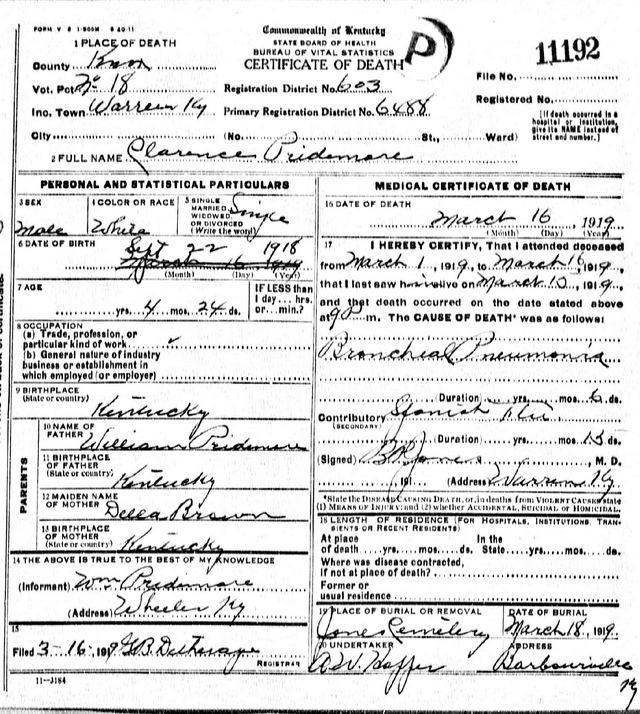 FORM V S 1-500M 9 20-11
Commonwealth of Kentucky
STATE BOARD OF HEALTH
BUREAU OF VITAL STATISTICS
CERTIFICATE OF DEATH
P
11192
1 PLACE OF DEATH
County Knox
Vot. Pct. No 18
Inc. Town Warren Ky
City
Registration District No. 603
Primary Registration District No. 6488
(No. St., Ward)
File No.
Registered No.
[If death occurred in a hospital or institution, give its NAME instead of street and number.]
2 FULL NAME Clarence Pridemore
PERSONAL AND STATISTICAL PARTICULARS
3 SEX
Male
4 COLOR OR RACE
White
5 SINGLE MARRIED WIDOWED OR DIVORCED (Write the word)
Single
6 DATE OF BIRTH
Sept 22 1918
March 16 1919
(Month) (Day) (Year)
7 AGE
yrs. 4 mos. 24 ds.
IF LESS than 1 day... hrs. or... min.?
8 OCCUPATION
(a) Trade, profession, or particular kind of work
(b) General nature of industry business or establishment in which employed (or employer)
9 BIRTHPLACE
(State or country)
Kentucky
PARENTS
10 NAME OF FATHER
William Pridemore
11 BIRTHPLACE OF FATHER (State or country)
Kentucky
12 MAIDEN NAME OF MOTHER
Della Brown
13 BIRTHPLACE OF MOTHER (State or country)
Kentucky
14 THE ABOVE IS TRUE TO THE BEST OF MY KNOWLEDGE
(Informant) Wm Pridemore
(Address) Wheeler Ky
15
Filed 3-16-1919
REGISTRAR
11-3184
MEDICAL CERTIFICATE OF DEATH
16 DATE OF DEATH
March 16 1919
(Month) (Day) (Year)
17 I HEREBY CERTIFY, That I attended deceased
from March 1, 1919, to March 16, 1919,
that I last saw h alive on March 15, 1919,
and that death occurred on the date stated above
at 9 P m. The CAUSE OF DEATH* was as follows:
Broncheal Pneumonia
(Duration) yrs. mos. 6 ds.
Contributory Spanish Flu
(SECONDARY)
(Duration) yrs. mos. 15 ds.
(Signed) Jones, M. D.
, 191 (Address) Warren Ky
*State the DISEASE CAUSING DEATH, or, in deaths from VIOLENT CAUSES state
(1) MEANS OF INJURY; and (2) whether ACCIDENTAL, SUICIDAL or HOMICIDAL.
18 LENGTH OF RESIDENCE (FOR HOSPITALS, INSTITUTIONS, TRANSIENTS OR RECENT RESIDENTS)
At place of death yrs. mos. ds. In the State yrs. mos. ds.
Where was disease contracted, if not at place of death?
Former or usual residence
19 PLACE OF BURIAL OR REMOVAL
Jones Cemetery
DATE OF BURIAL
March 18, 1919
20 UNDERTAKER
ADDRESS
Barbourville
Ky